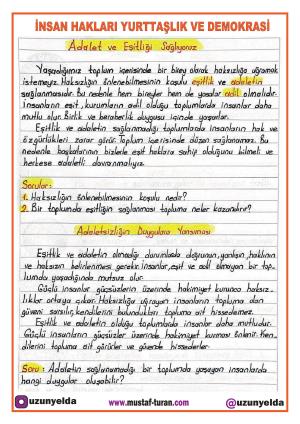 İNSAN HAKLARI YURTTAŞLIK VE DEMOKRASİ
Adalet ve Eşitliği Sağlıyoruz
Yaşadığımız toplum içerisinde bir birey olarak haksızlığa uğramak
istemeyiz. Haksızlığın önlenebilmesinin koşulu eşitlik ve adaletin
sağlanmasıdır. Bu nedenle hem bireyler hem de yasalar adil olmalıdır.
İnsanların eşit, kurumların adil olduğu toplumlarda insanlar daha
mutlu olur. Birlik ve beraberlik duygusu içinde yaşarlar.
Eşitlik ve adaletin sağlanmadığı toplumlarda insanların hak ve
özgürlükleri zarar görür. Toplum içerisinde düzen sağlanamaz. Bu
nedenle başkalarının bizlerle eşit haklara sahip olduğunu bilmeli ve
herkese adaletli davranmalıyız.
Sorular:
1. Haksızlığın önlenebilmesinin koşulu nedir?
2. Bir toplumda eşitliğin sağlanması topluma neler kazandırır?
Adaletsizliğin Duygulara Yansıması
Eşitlik ve adaletin olmadığı durumlarda doğrunun, yanlışın, haklının
ve haksızın belirlenmesi gerekir. İnsanlar, eşit ve adil olmayan bir top-
lumda yaşamak istemezler. Mutlu olmazlar.
Güçlü insanlar güçsüzlerin üzerinde hakimiyet kurunca haksız-
lıklar ortaya çıkar. Haksızlığa uğrayan insanların topluma olan
güveni sarsılır, kendilerini bulundukları topluma ait hissedemez.
Eşitlik ve adaletin olduğu toplumlarda insanlar daha mutludur.
Güçlü insanların güçsüzler üzerinde hakimiyet kurması önlenir. Ken-
dilerini topluma ait görürler ve güvende hissederler.
Soru: Adaletin sağlanamadığı bir toplumda yaşayan insanlarda
hangi duygular oluşabilir?
uzunyelda
www.mustaf-turan.com
@uzunyelda